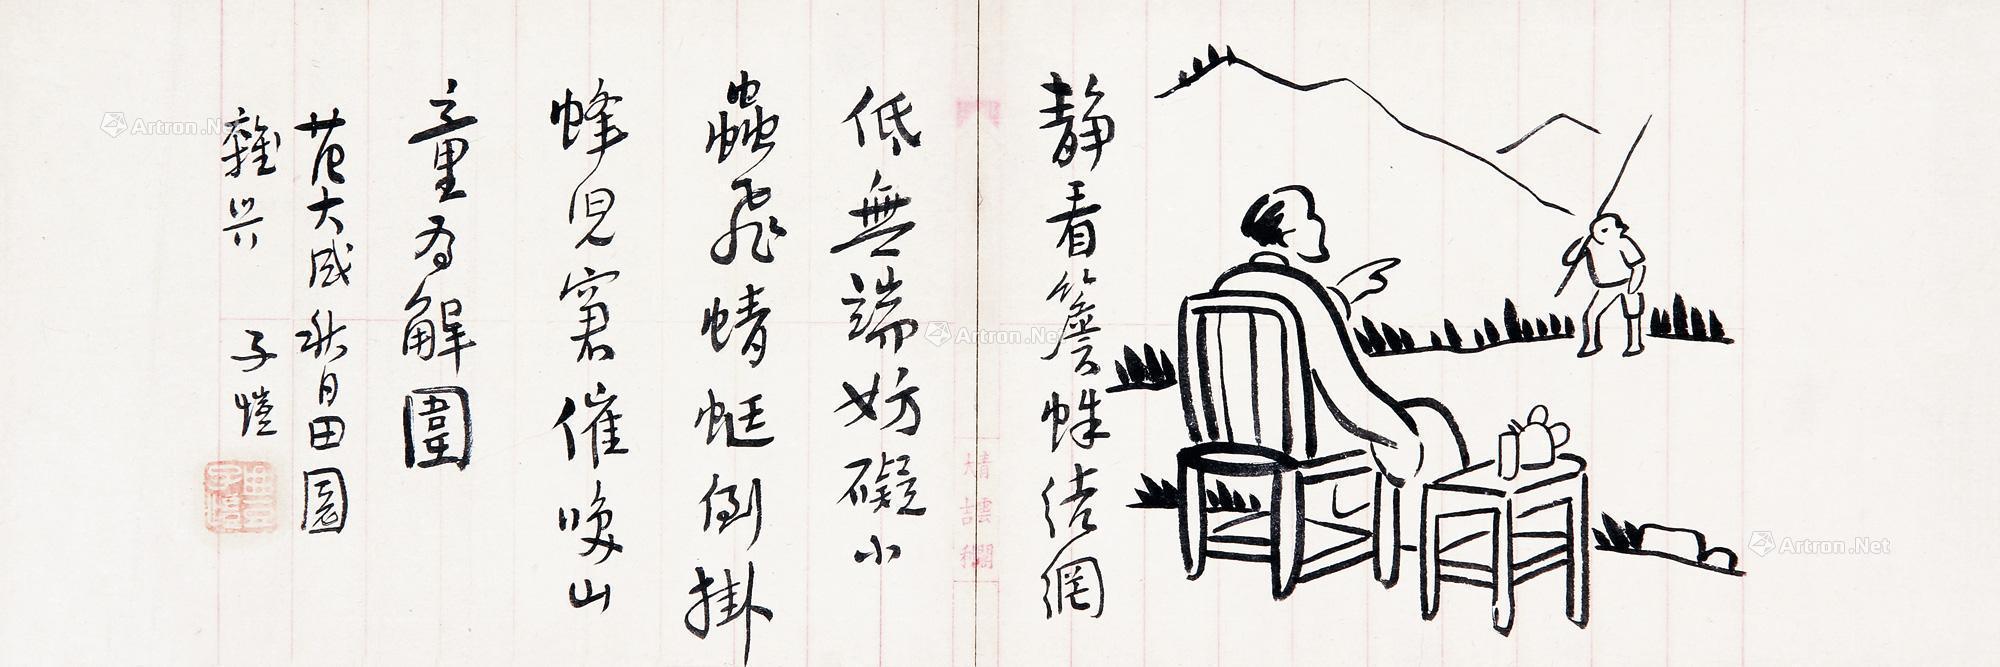 静看簷蛛结網
低無端妨礙小
蟲飛蜻蜓倒掛
蜂児窘催喚山
童為解圍
范大成秋日田園
雜興 子愷
豐子愷
Artron.Net
Artron.Net
Artron.Net